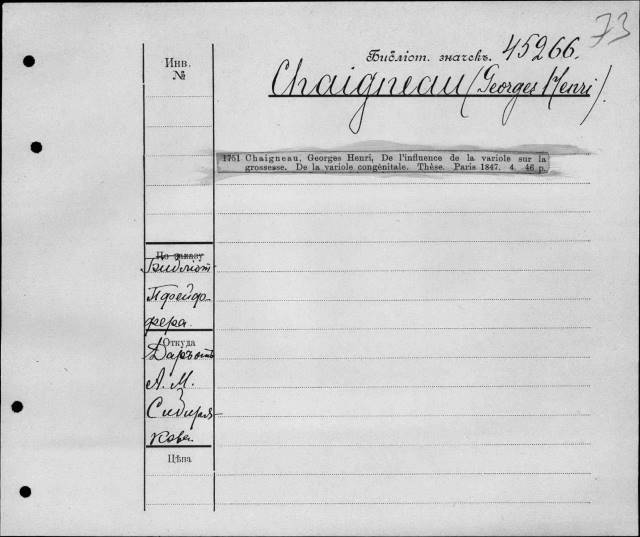 73
Библіот. значекъ. 45266.
Chaigneau (Georges Henri).
Инв.
№
1751 Chaigneau, Georges Henri, De l'influence de la variole sur la
grossesse. De la variole congénitale. Thèse. Paris 1847. 4. 46 p.
По заказу
Библіот.
Пфейфо-
фера.
Откуда
Даръ отъ
А. М.
Сибиря-
кова.
Цѣна